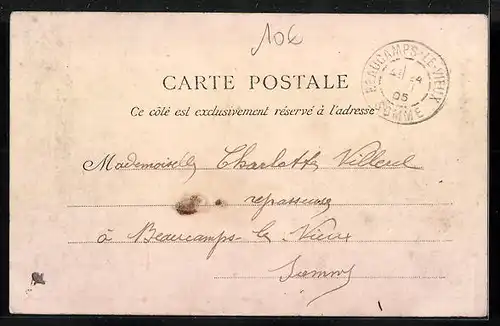 10€
BEAUCAMPS-LE-VIEUX
05
SOMME
CARTE POSTALE
Ce côté est exclusivement réservé à l'adresse
Mademoiselle Charlotte
repasseuse
à Beaucamps-le Vieux
Somme